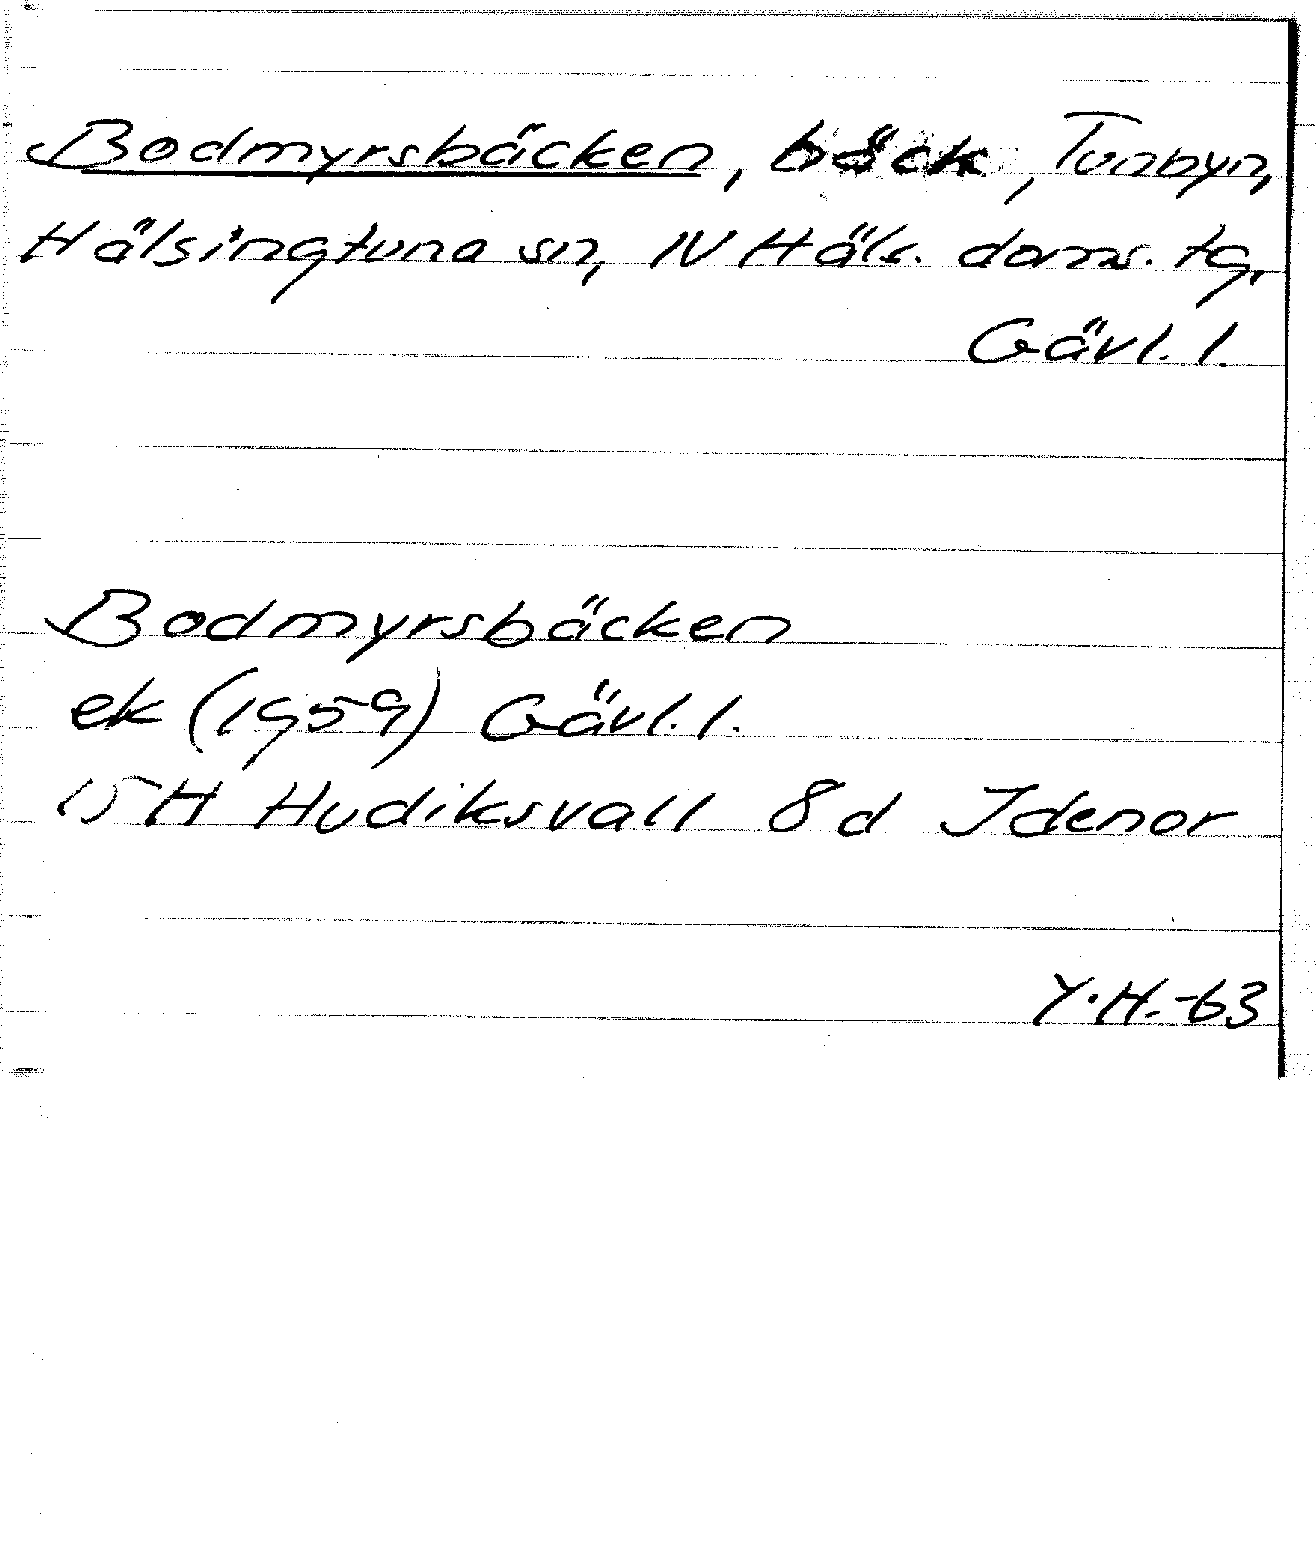 Bodmyrsbäcken, bäck, Tunbyn,
Hälsingtuna sn, N Häls. doms. tg,
Gävl. l.
Bodmyrsbäcken
ek (1959) Gävl. l.
15 H Hudiksvall 8 d Idenor
Y.H.-63